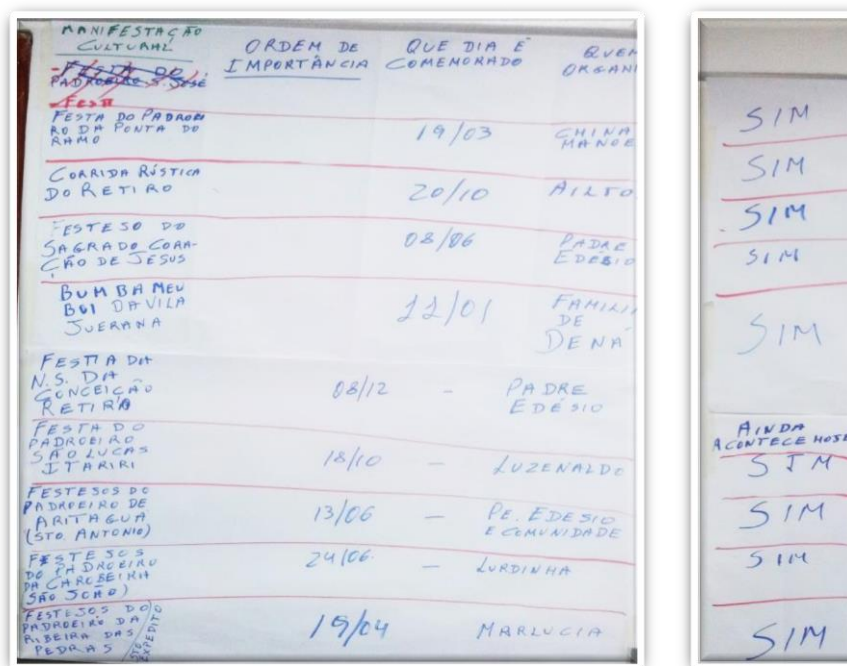 MANIFESTAÇÃO
CULTURAL
ORDEM DE
IMPORTÂNCIA
QUE DIA É
COMEMORADO
QUEM
ORGANI
- FESTA DO
PADROEIRO S. JOSÉ
- FEST
FESTA DO PADROEI
RO DA PONTA DO
RAMO
19/03
CHINA
MANOE
CORRIDA RÚSTICA
DO RETIRO
20/10
AILTO
FESTEJO DO
SAGRADO CORA-
ÇÃO DE JESUS
08/06
PADRE
EDÉSIO
BUMBA MEU
BOI DA VILA
JUERANA
11/01
FAMILI
DE
DENÁ
FESTA DA
N.S. DA
CONCEIÇÃO
RETIRO
08/12 -
PADRE
EDÉSIO
FESTA DO
PADROEIRO
SÃO LUCAS
ITARIRI
18/10 -
LUZENALDO
FESTEJOS DO
PADROEIRO DE
ARITAGUA
(STO. ANTONIO)
13/06 -
PE. EDESIO
E COMUNIDADE
FESTEJOS
DO PADROEIRO
DA CAROBEIRA
SÃO JOÃO)
24/06. -
LURDINHA
FESTEJOS DO
PADROEIRO DA
RIBEIRA DAS
PEDRAS
STO
EXPEDITO
19/04
MARLUCIA
SIM
SIM
SIM
SIM
SIM
AINDA
ACONTECE HOJE
SIM
SIM
SIM
SIM